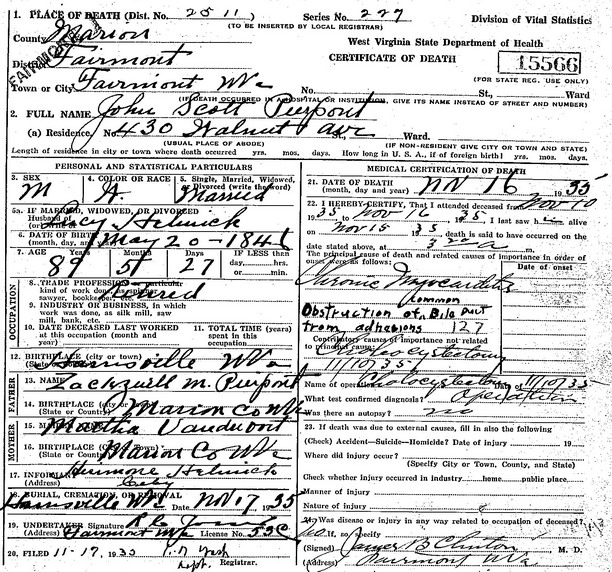 1. PLACE OF DEATH (Dist. No. 2511 Series No. 227 Division of Vital Statistics
(TO BE INSERTED BY LOCAL REGISTRAR)
County Marion West Virginia State Department of Health
FAIRMONT
District Fairmont CERTIFICATE OF DEATH 15566
Town or City Fairmont WVa No. St., Ward (FOR STATE REG. USE ONLY)
(IF DEATH OCCURRED IN A HOSPITAL OR INSTITUTION, GIVE ITS NAME INSTEAD OF STREET AND NUMBER)
2. FULL NAME John Scott Pierpont
(a) Residence, No. 430 Walnut ave St., Ward.
(USUAL PLACE OF ABODE) (IF NON-RESIDENT GIVE CITY OR TOWN AND STATE)
Length of residence in city or town where death occurred yrs. mos. ds. How long in U. S. A., if of foreign birth? yrs. mos. days.
PERSONAL AND STATISTICAL PARTICULARS
3. SEX 4. COLOR OR RACE 5. Single, Married, Widowed, or Divorced (write the word)
M W Married
5a. IF MARRIED, WIDOWED, OR DIVORCED
Husband of (or) Wife of Helmick
6. DATE OF BIRTH (month, day, and year) May 20-1846
7. AGE 89 Years 5 Months 27 Days IF LESS than 1 day, hrs. or min.
OCCUPATION
8. TRADE PROFESSION, or particular kind of work done, as spinner, sawyer, bookkeeper, etc. Retired
9. INDUSTRY OR BUSINESS, in which work was done, as silk mill, saw mill, bank, etc.
10. DATE DECEASED LAST WORKED at this occupation (month and year)
11. TOTAL TIME (years) spent in this occupation.
12. BIRTHPLACE (city or town) (State or County) Harrisville WVa
FATHER
13. NAME Zackquill M. Pierpont
14. BIRTHPLACE (city or town) (State or County) Marion Co WVa
MOTHER
15. MAIDEN NAME Martha Vandervort
16. BIRTHPLACE (City or Town) (State or County) Marion Co WVa
17. INFORMANT Helmick
(Address) City
18. BURIAL, CREMATION, OR REMOVAL
Harrisville WVa Date Nov 17 1935
19. UNDERTAKER Signature R C Jones
(Address) Fairmont WVa License No. 530
20. FILED 11-17, 1935 Dept. Registrar.
MEDICAL CERTIFICATION OF DEATH
21. DATE OF DEATH (month, day and year) Nov 16 1935
22. I HEREBY CERTIFY, That I attended deceased from Nov 10
1935 to Nov 16, 1935. I last saw h alive
on Nov 15 1935. death is said to have occurred on the
date stated above, at 3 a m.
The principal cause of death and related causes of importance in order of onset were as follows: Date of onset
Chronic Myocarditis
Common
Obstruction of Bile Duct
from adhesions 127
Contributory causes of importance not related to principal cause:
Cholecystectomy
11/10/35
Name of operation Cholecystectomy Date of 11/10/35
What test confirmed diagnosis? Operation
Was there an autopsy? no
23. If death was due to external causes, fill in also the following
(Check) Accident—Suicide—Homicide? Date of injury 19
Where did injury occur?
(Specify City or Town, County, and State)
Check whether injury occurred in industry home public place
Manner of injury
Nature of injury
24. Was disease or injury in any way related to occupation of deceased?
no If so, specify
(Signed) James B Clinton M. D.
(Address) Fairmont WVa